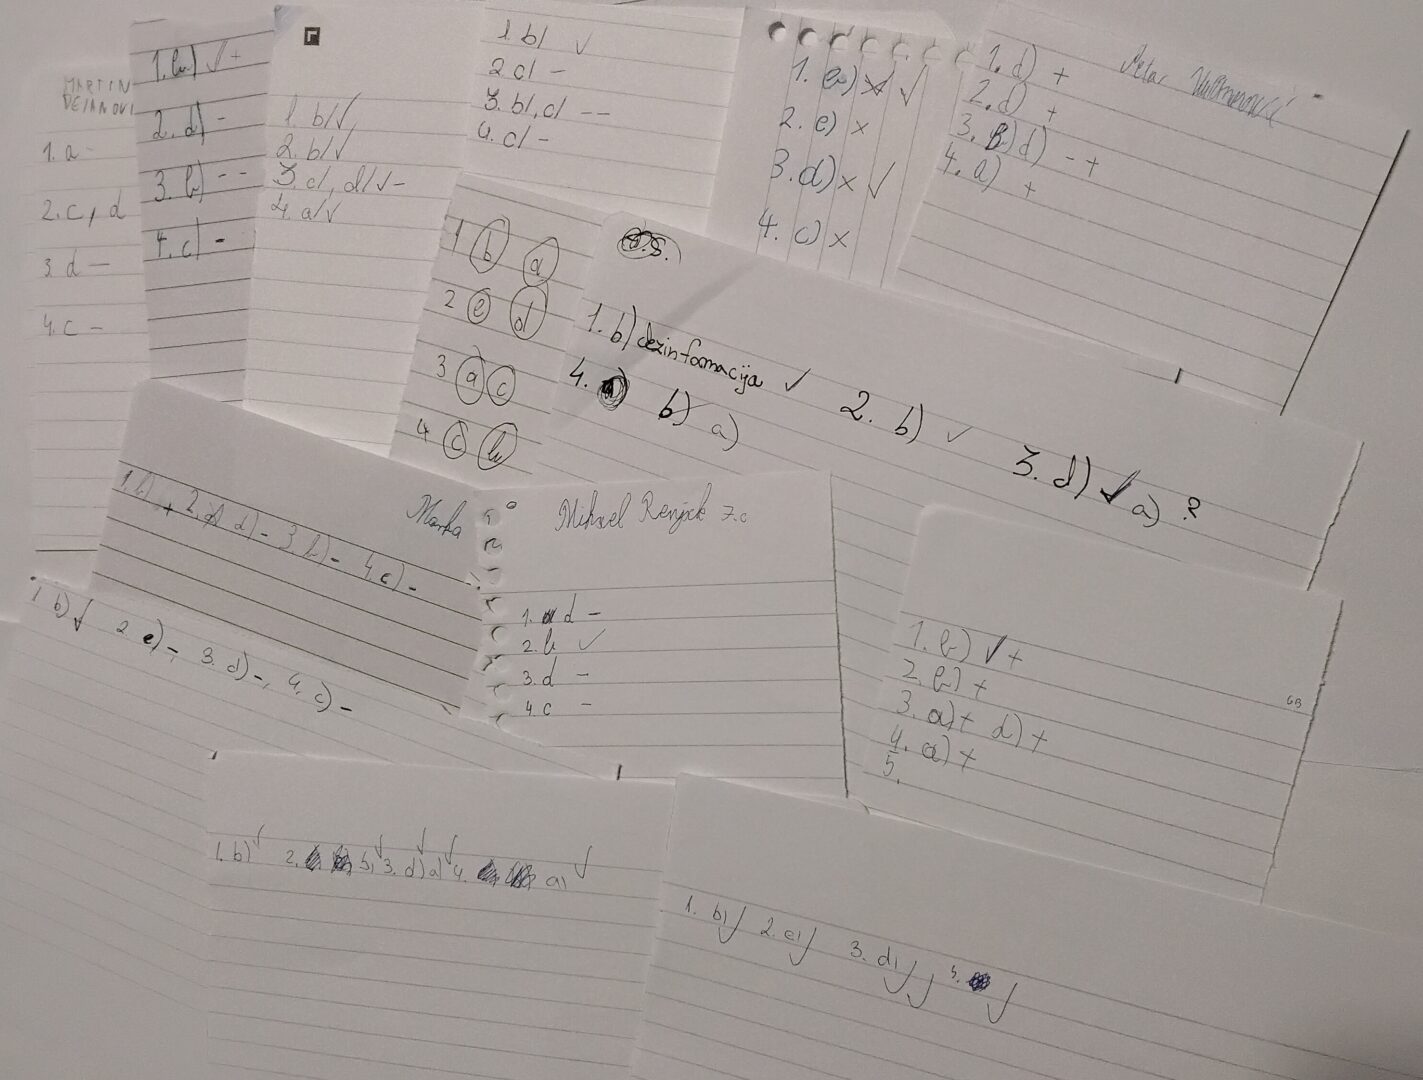 MARTIN
DEJANOVI
1. a -
2. c, d
3. d -
4. c -
1. b) ✓ +
2. d) -
3. b) - -
4. c) -
1. b) ✓
2. b) ✓
3. c), d) ✓ -
4. a) ✓
1. b) ✓
2. c) -
3. b), c) - -
4. c) -
2. e) x
3. d) x ✓
4. c) x
1. d) +
2. d) +
3. B) d) - +
4. a) +
Petar
1 b a
2 e d
3 a c
4 c b
1. b) dezinformacija ✓ 2. b) ✓ 3. d) ✓ a) ?
4. b) a)
Marka
1. b) + 2. d) - 3. b) - 4. c) -
1. b) ✓ 2. e) -, 3. d) -, 4. c) -
Mihael Renjak 7.c
1. d -
2. b ✓
3. d -
4. c -
1. b) ✓ +
2. b) +
3. a) + d) +
4. a) +
5.
6B
1. b) ✓ 2. b) ✓ 3. d) ✓ a) ✓ 4. a) ✓
1. b) ✓ 2. e) ✓ 3. d) ✓ ✓ ✓